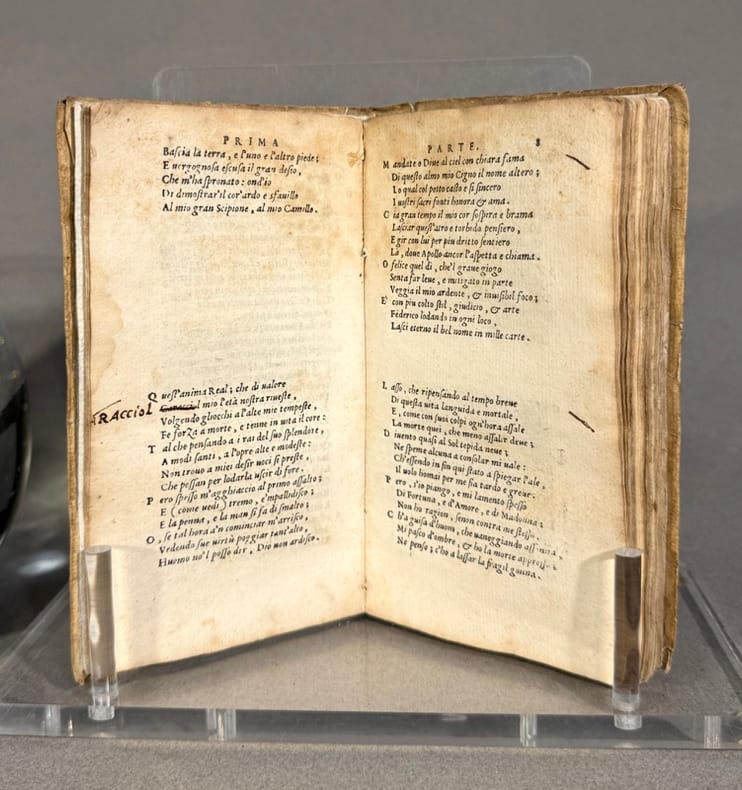 PRIMA
Bascia la terra, e l'uno e l'altro piede;
E uergognosa escusa il gran desio,
Che m'ha spronato: ond'io
Di dimostrar'il cor'ardo e sfauillo
Al mio gran Scipione, al mio Camillo.
Quest'anima Real; che di valore
ARACCIOL Caracciol mio l'età nostra riueste,
Volgendo gliocchi a l'alte mie tempeste,
Fe forza a morte, e tenne in uita il core:
Tal che pensando a i rai del suo splendore,
A modi santi, a l'opre alte e modeste:
Non trouo a miei desir uoci sì preste,
Che possan per lodarla uscir di fore.
Pero spesso m'agghiaccio al primo assalto;
E (come uedi) tremo, e'mpallidisco;
E la penna, e la man si fa di smalto;
O, se tal hora a'n cominciar m'arrisco,
Vedendo sue uirtù poggiar tant'alto,
Huomo no'l posso dir, Dio non ardisco.
PARTE. 8
Mandate o Diue al ciel con chiara fama
Di questo almo mio Cigno il nome altero;
Lo qual col petto casto e si sincero
I uostri sacri fonti honora & ama.
Gia gran tempo il mio cor sospira e brama
Lasciar quest'atro e torbido pensiero,
E gir con lui per piu dritto sentiero
Là, doue Apollo ancor l'aspetta e chiama.
O felice quel dì, che'l graue giogo
Senta far leue, e mitigato in parte
Veggia il mio ardente, & inuisibil foco;
E' con piu colto stil, giudicio, & arte
Federico lodando in ogni loco,
Lasci eterno il bel nome in mille carte.
Lasso, che ripensando al tempo breue
Di questa uita languida e mortale,
E, come con suoi colpi ogn'hora assale
La morte quei, che meno assalir deue;
Diuento quasi al Sol tepida neue;
Ne speme alcuna a consolar mi uale:
Ch'essendo in fin qui stato a spiegar l'ale,
Il uolo homai per me fia tardo e greue.
Pero, s'io piango, e mi lamento spesso
Di Fortuna, e d'Amore, e di Madonna;
Non ho ragion, senon contra me stesso.
Ch'a guisa d'huom, che uaneggiando
Mi pasco d'ombre, & ho la morte appresso
Ne penso; c'ho a lassar la fragil gonna.